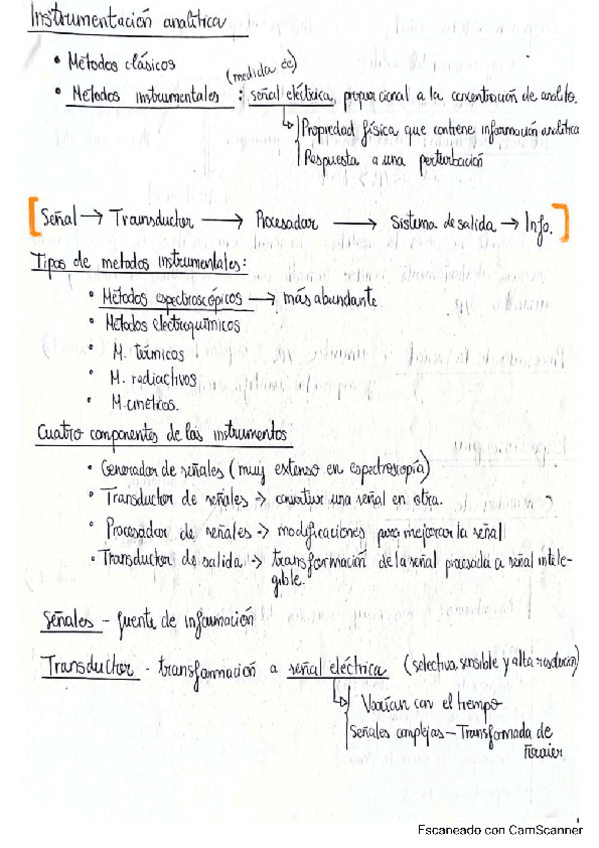 Instrumentación analítica
• Métodos clásicos
(medida de)
• Métodos instrumentales : señal eléctrica, proporcional a la concentración de analito.
↳ Propiedad física que contiene información analítica
Respuesta a una perturbación
[Señal → Transductor → Procesador → Sistema de salida → Info.]
Tipos de metodos instrumentales:
• Métodos espectroscópicos → más abundante
• Métodos electroquímicos
• M. térmicos
• M. radiactivos
• M. cinéticos.
Cuatro componentes de los instrumentos
• Generador de señales (muy extenso en espectroscopía)
• Transductor de señales -> convertir una señal en otra.
• Procesador de señales -> modificaciones para mejorar la señal
• Transductor de salida -> transformación de la señal procesada a señal intele-
gible.
Señales - fuente de información
Transductor - transformación a señal eléctrica (selectiva, sensible y alta resolución)
↳ Varían con el tiempo
Señales complejas - Transformada de
Fourier
Escaneado con CamScanner